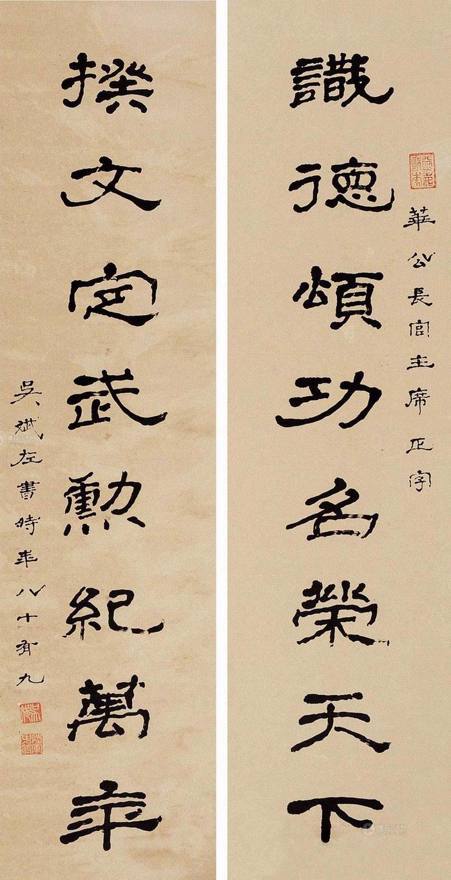 華公長官主席正字
識德頌功名榮天下
撰文定武勳紀萬年
吳斌左書時年八十有九